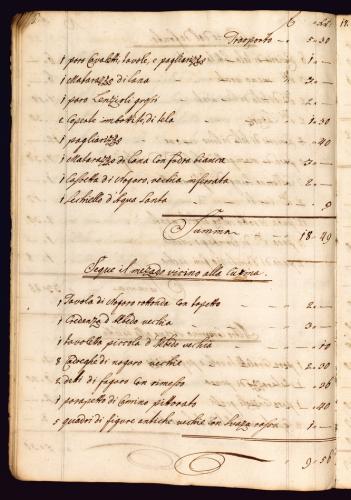 Trasporto - 5-30
1 paro Cavaletti, tavole, e pagliarizzo - 1 -
1 Matarazzo di lana - 3 -
1 paro Lenzioli grossi - 2 -
2 imbottiti, di tela - 1-30
1 pagliarizzo - -40
1 Matarazzo di lana con fodra bianca - 3 -
1 Cassetta di Nogaro, vechia inferrata - 2 -
1 Sechiello d'Aqua Santa - 9
Summa - 18-49
Segue il mezado vicino alla Cusina.
1 Tavola di Nogaro rottonda con tapetto - 2 -
1 Credenza d'Albedo vechia - 3 -
1 tavoletta piccola d'Albedo vechia - -10
8 Cadreghe di nogaro vechie - 2-30
2 dette di fagaro con rimesso - -36
1 parapetto di Camino pitturato - -40
5 quadri di figure antiche vechie con soaza rossa - 1 -
9-56